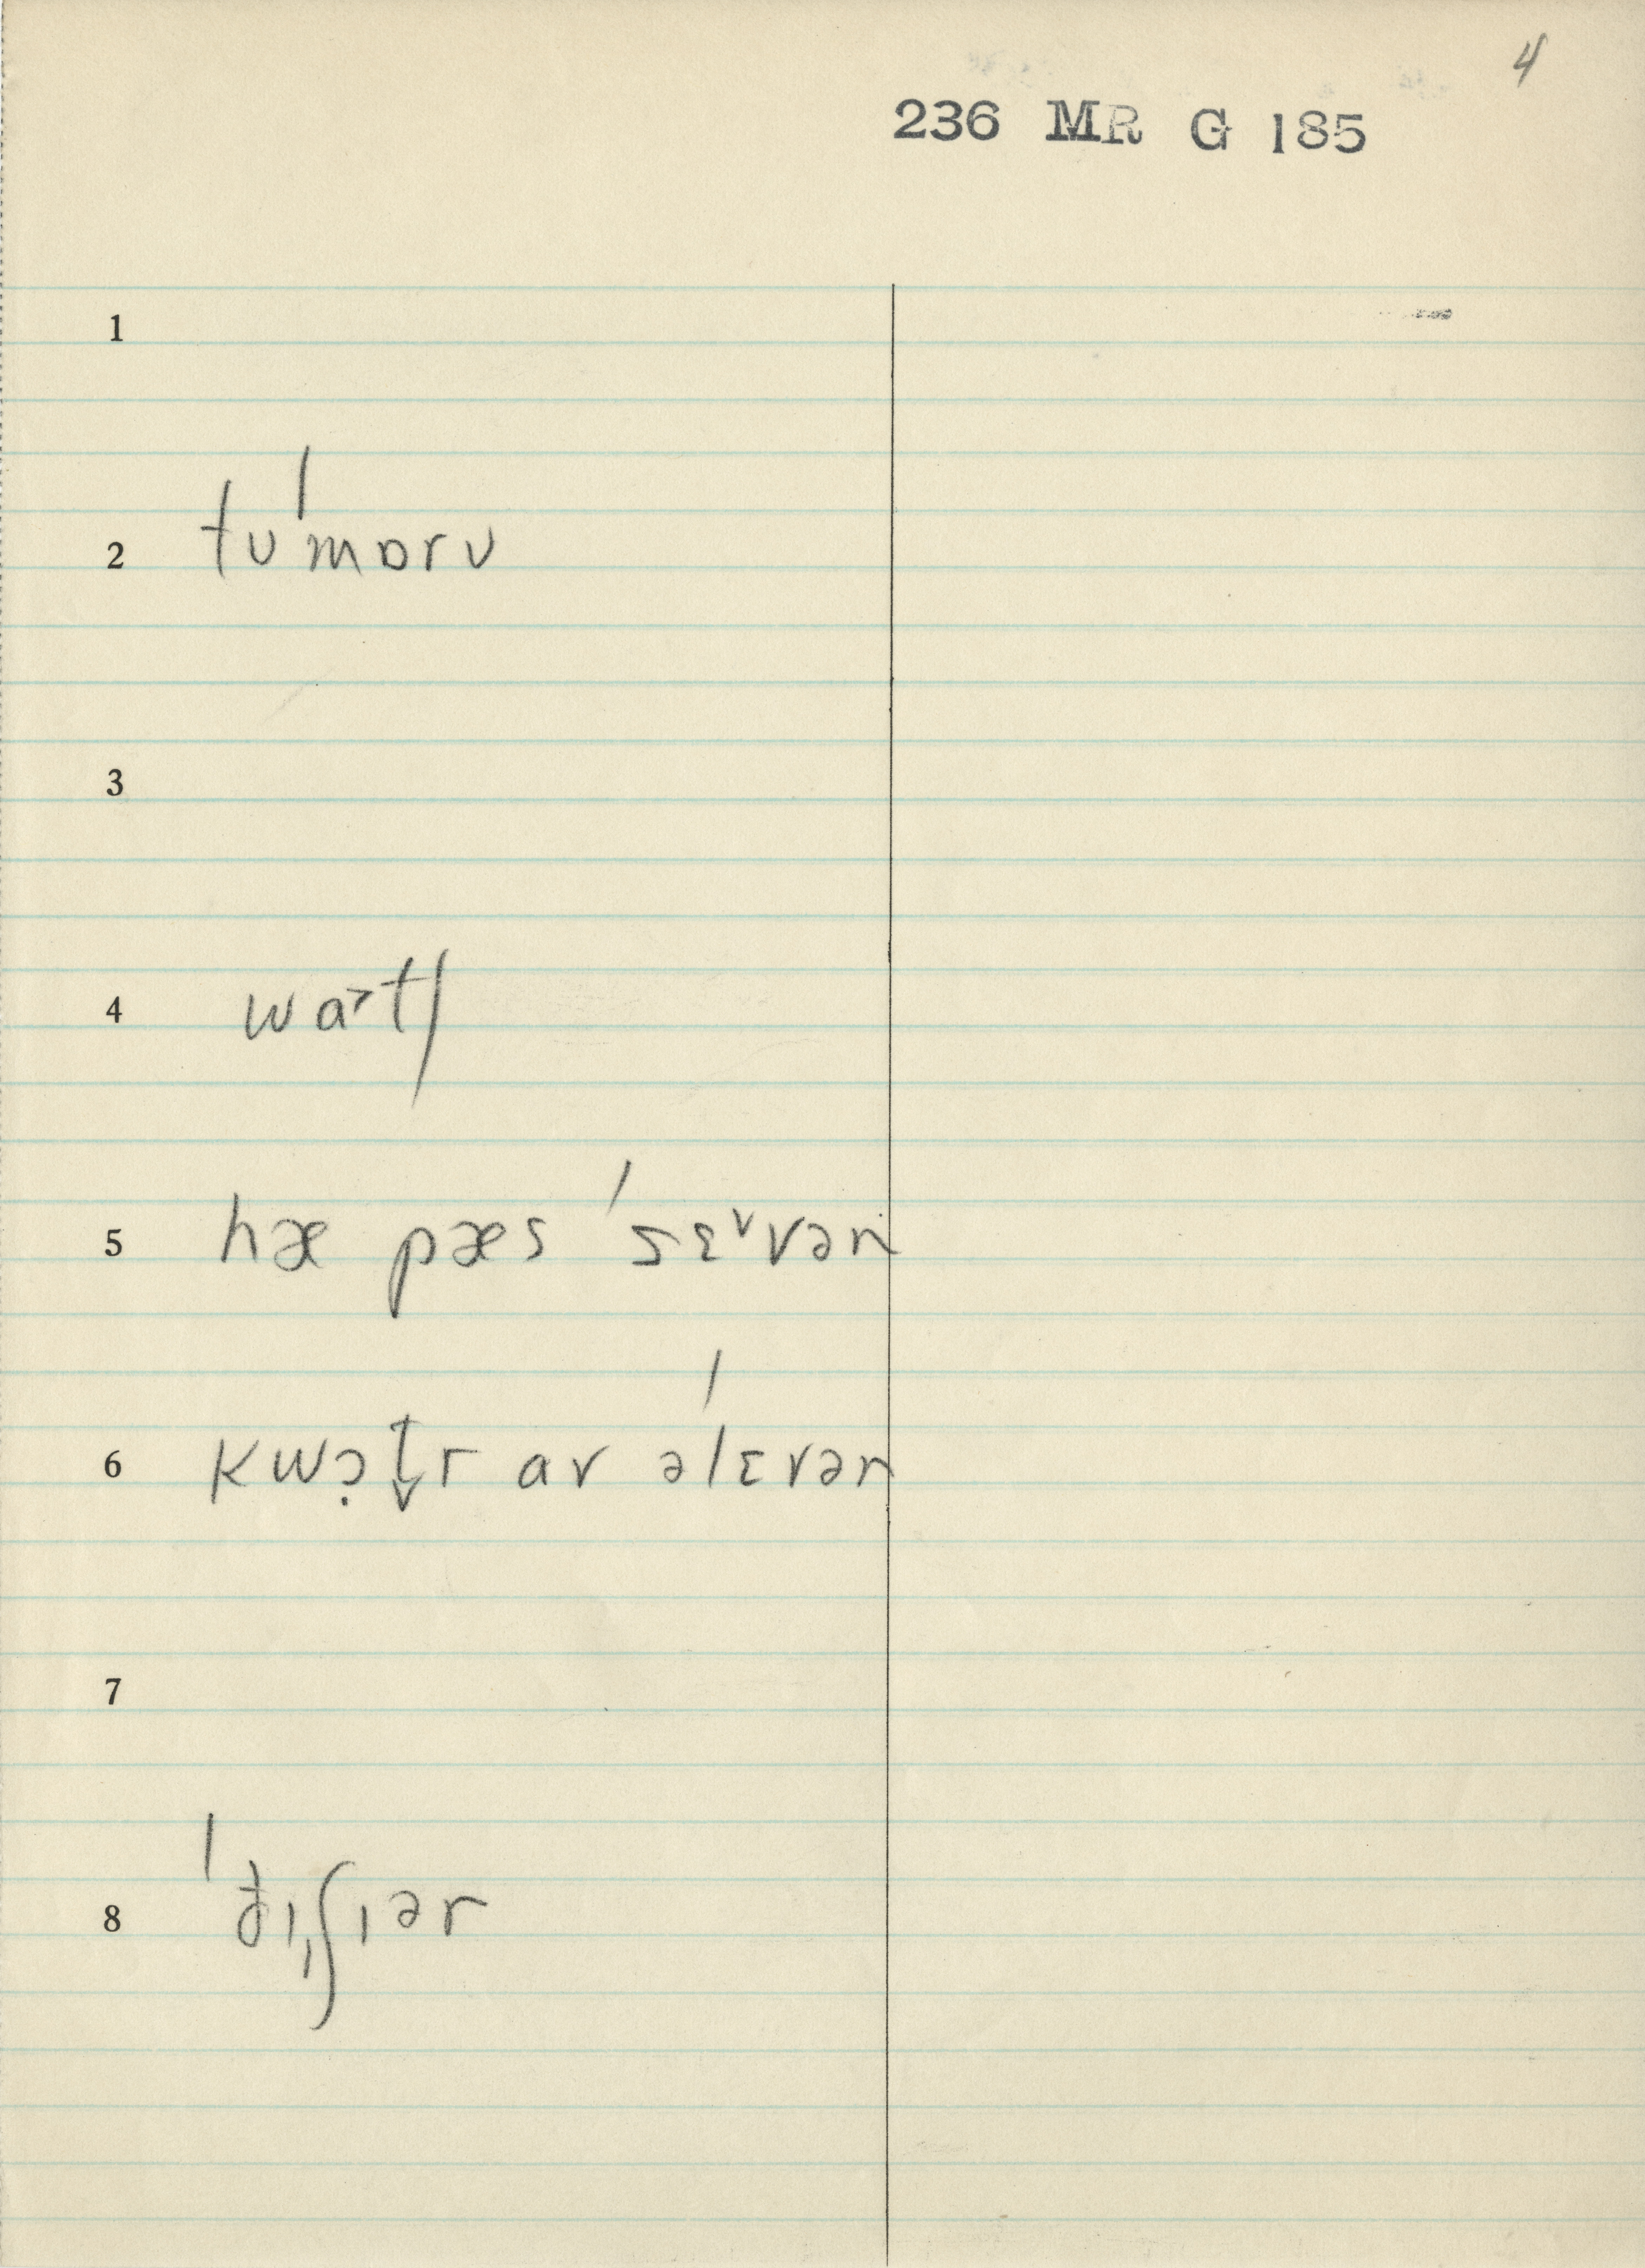 4
236 MR G 185
1
2 tʊˈmɒrʊ
3
4 wa˃tʃ
5 hæ pæs ˈsɛ˅vən
6 kwɔ̣t̬r av əˈlɛvən
7
8 ˈðɪ̩ʃɪər